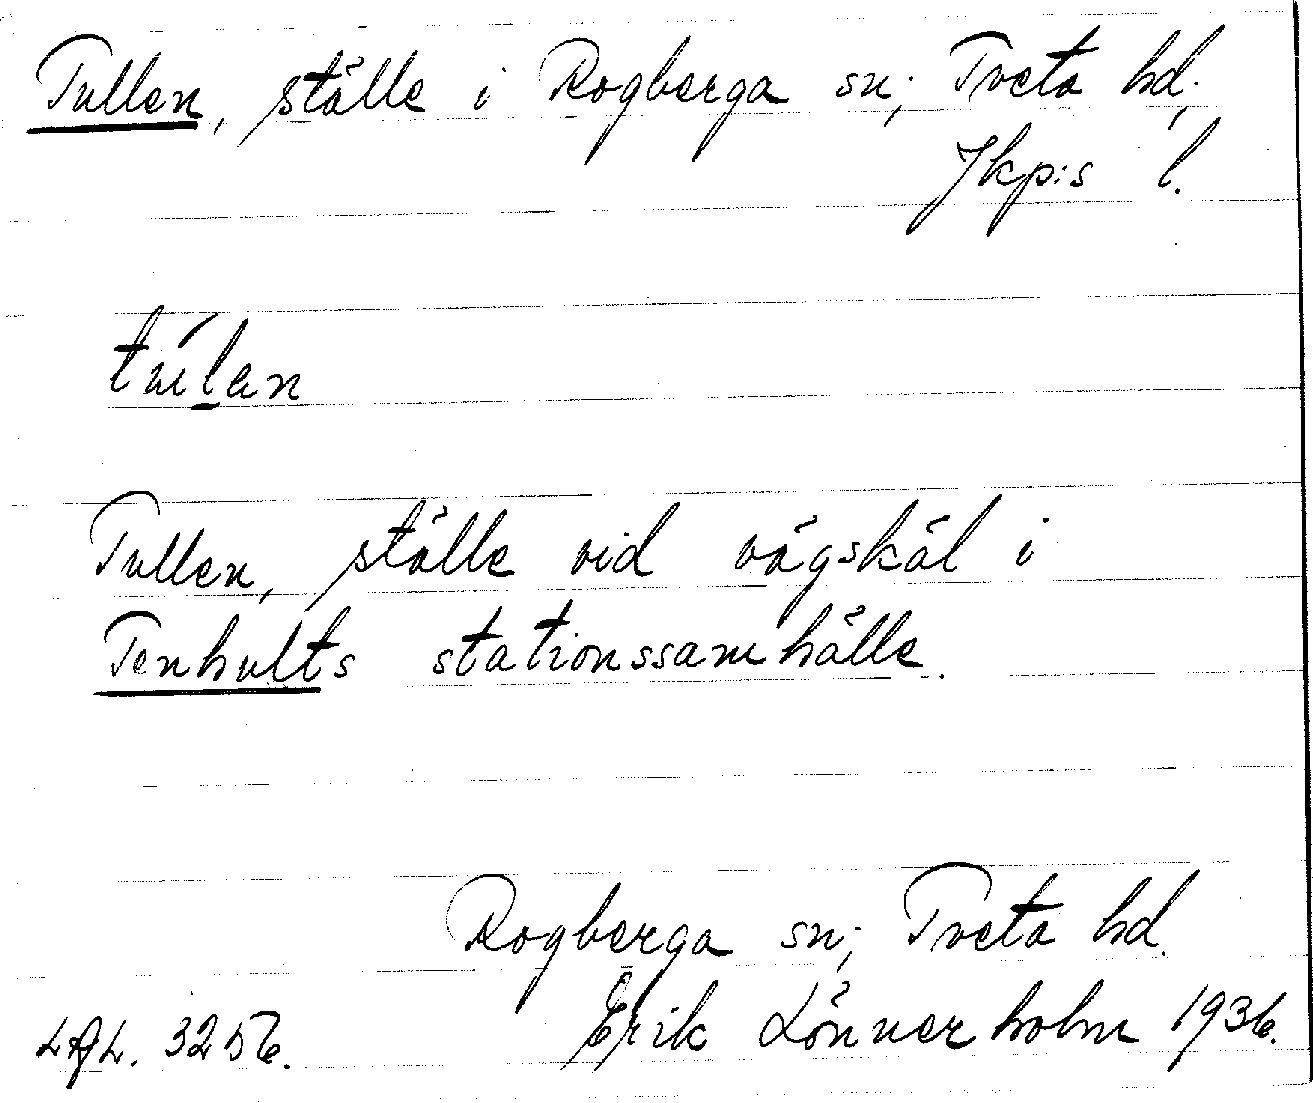 Tullen, ställe i Rogberga sn; Tveta hd;
Jkp:s l.
túlen
Tullen, ställe vid vägskäl i
Tenhults stationssamhälle.
Rogberga sn; Tveta hd.
Erik Lönnerholm 1936.
LAL. 3256.